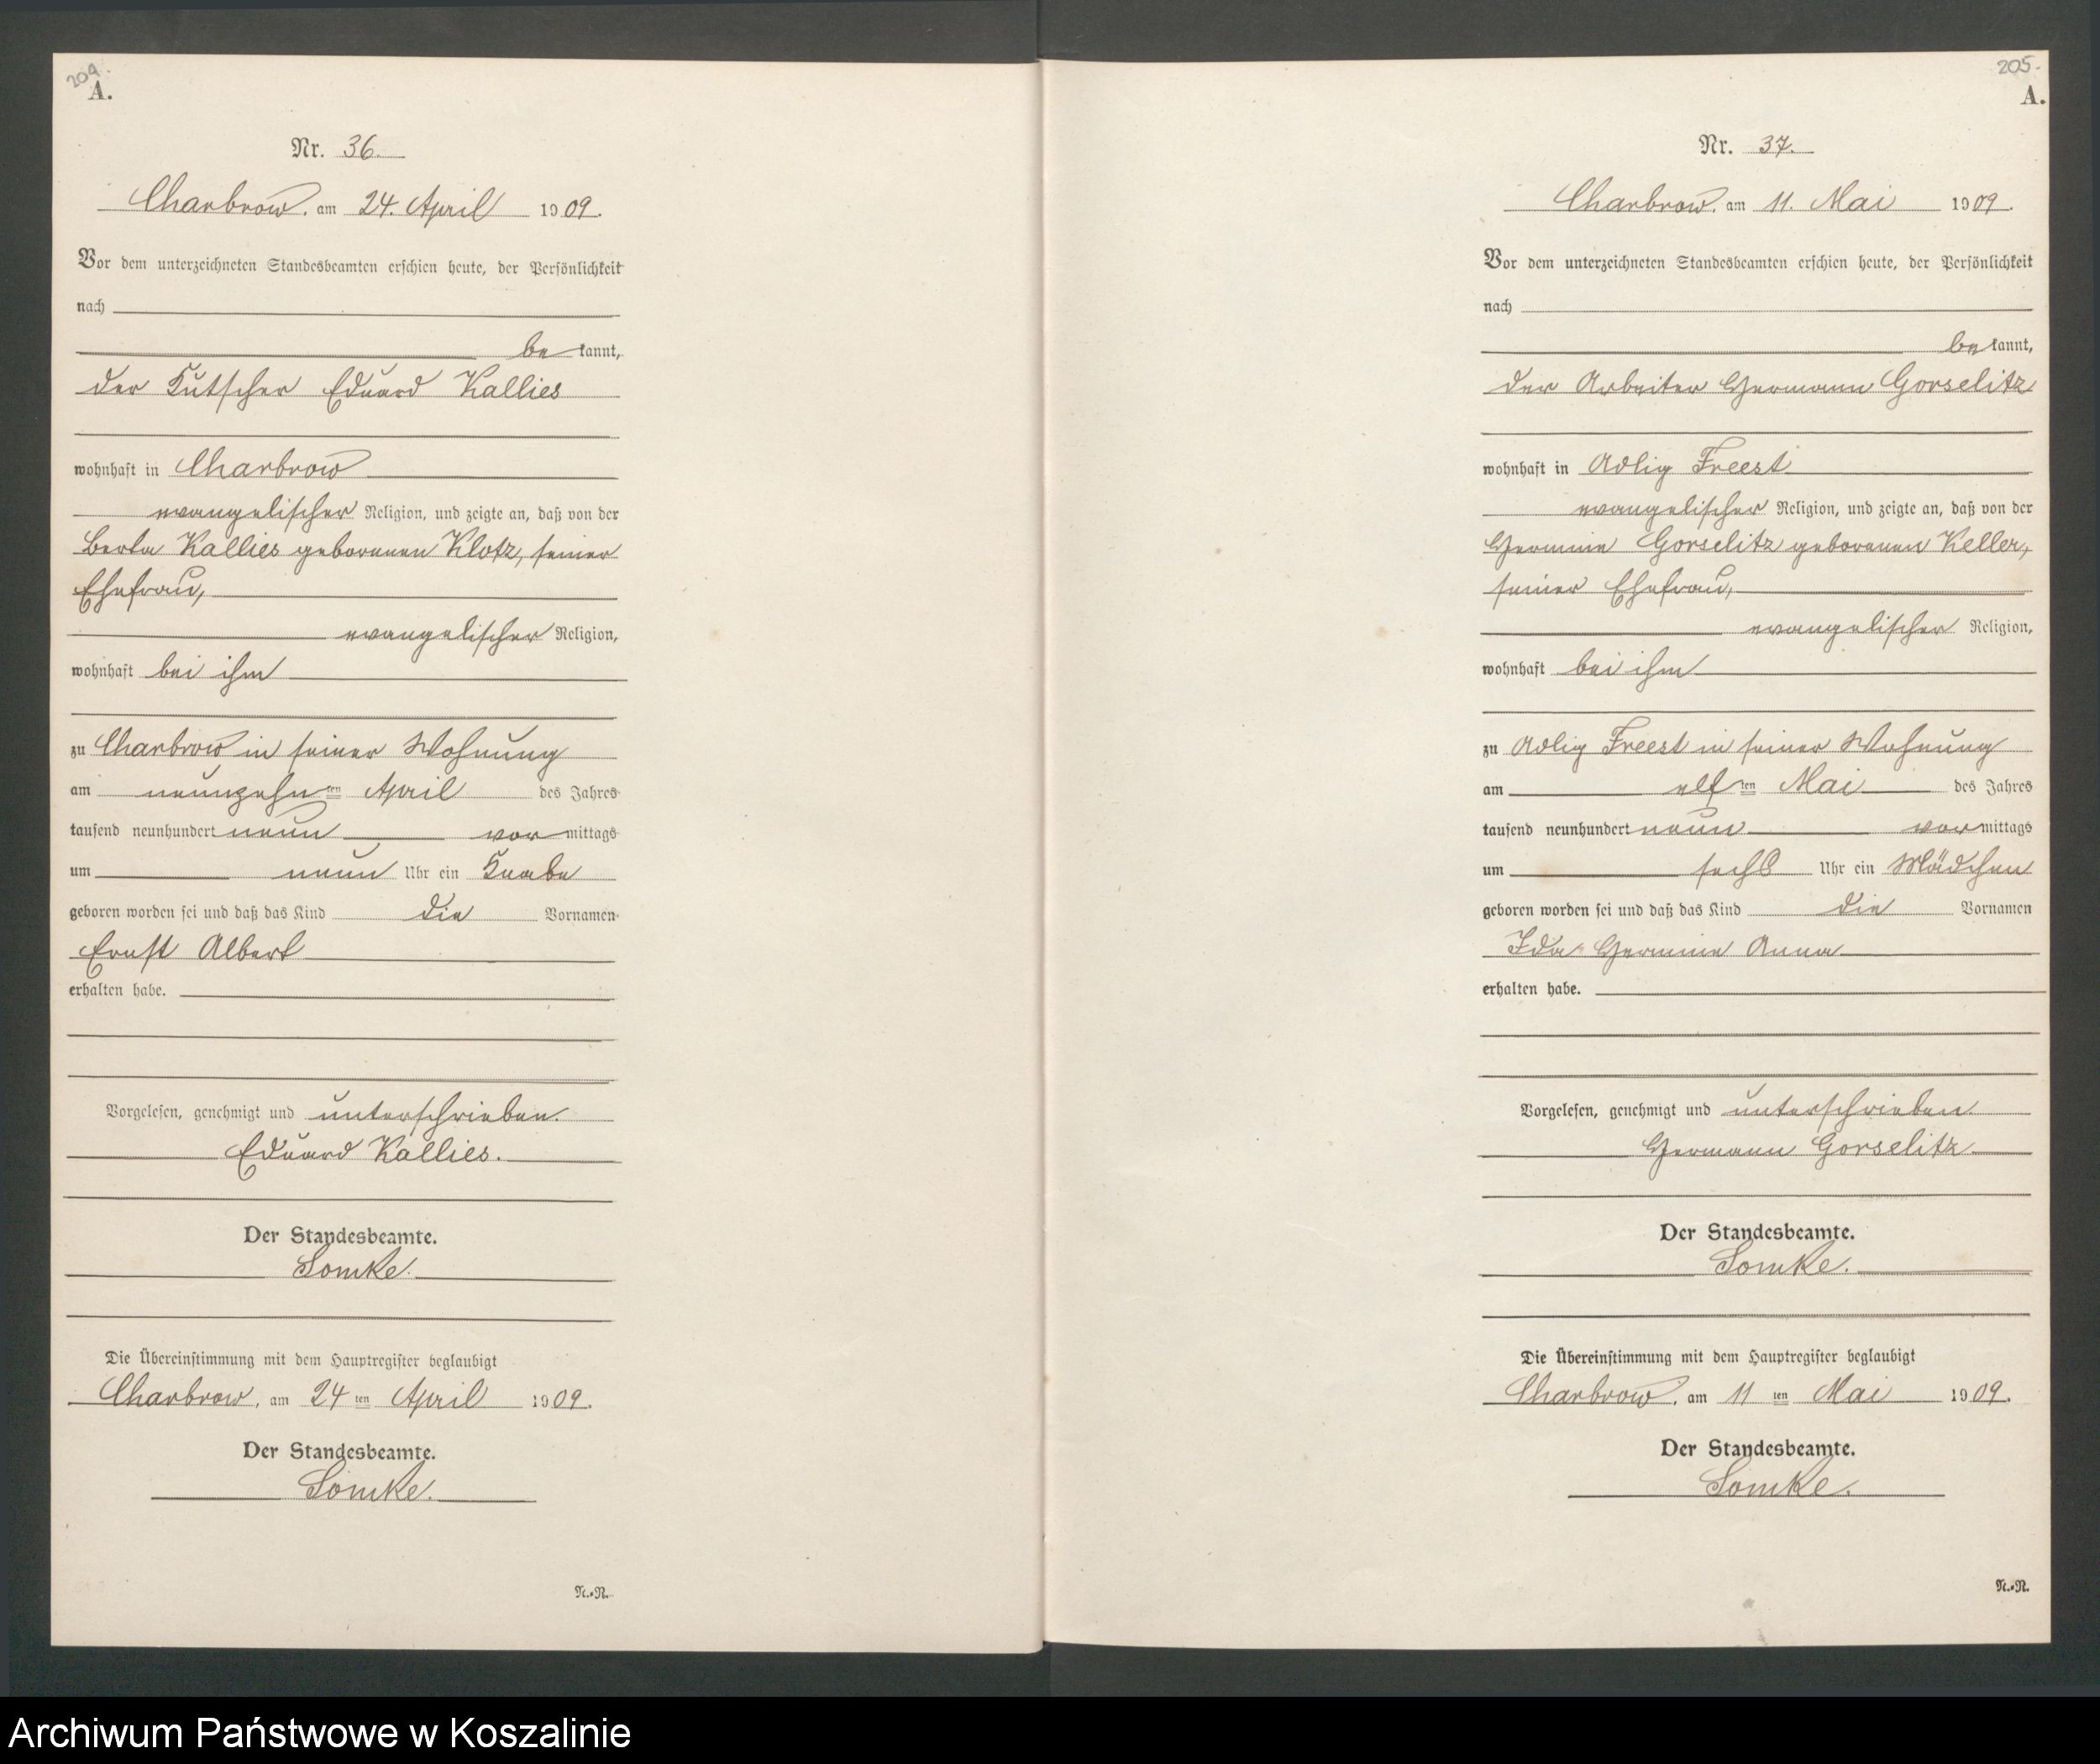 204.
A.
Nr. 36.
Charbrow, am 24. April 1909.
Vor dem unterzeichneten Standesbeamten erschien heute, der Persönlichkeit
nach
be kannt,
der Kutscher Eduard Kallies
wohnhaft in Charbrow
evangelischer Religion, und zeigte an, daß von der
Berta Kallies geborenen Klotz, seiner
Ehefrau,
evangelischer Religion,
wohnhaft bei ihm
zu Charbrow in seiner Wohnung
am neunzehn ten April des Jahres
tausend neunhundert neun vor mittags
um neun Uhr ein Knabe
geboren worden sei und daß das Kind die Vornamen
Ernst Albert
erhalten habe.
Vorgelesen, genehmigt und unterschrieben.
Eduard Kallies.
Der Standesbeamte.
Lomke.
Die Übereinstimmung mit dem Hauptregister beglaubigt
Charbrow, am 24 ten April 1909.
Der Standesbeamte.
Lomke.
N.=N.
205.
A.
Nr. 37.
Charbrow, am 11. Mai 1909.
Vor dem unterzeichneten Standesbeamten erschien heute, der Persönlichkeit
nach
be kannt,
der Arbeiter Hermann Gorselitz
wohnhaft in Adlig Freest
evangelischer Religion, und zeigte an, daß von der
Hermine Gorselitz geborenen Keller,
seiner Ehefrau,
evangelischer Religion,
wohnhaft bei ihm
zu Adlig Freest in seiner Wohnung
am elf ten Mai des Jahres
tausend neunhundert neun vor mittags
um sechs Uhr ein Mädchen
geboren worden sei und daß das Kind die Vornamen
Ida Hermine Anna
erhalten habe.
Vorgelesen, genehmigt und unterschrieben.
Hermann Gorselitz.
Der Standesbeamte.
Lomke.
Die Übereinstimmung mit dem Hauptregister beglaubigt
Charbrow, am 11 ten Mai 1909.
Der Standesbeamte.
Lomke.
N.=N.
Archiwum Państwowe w Koszalinie